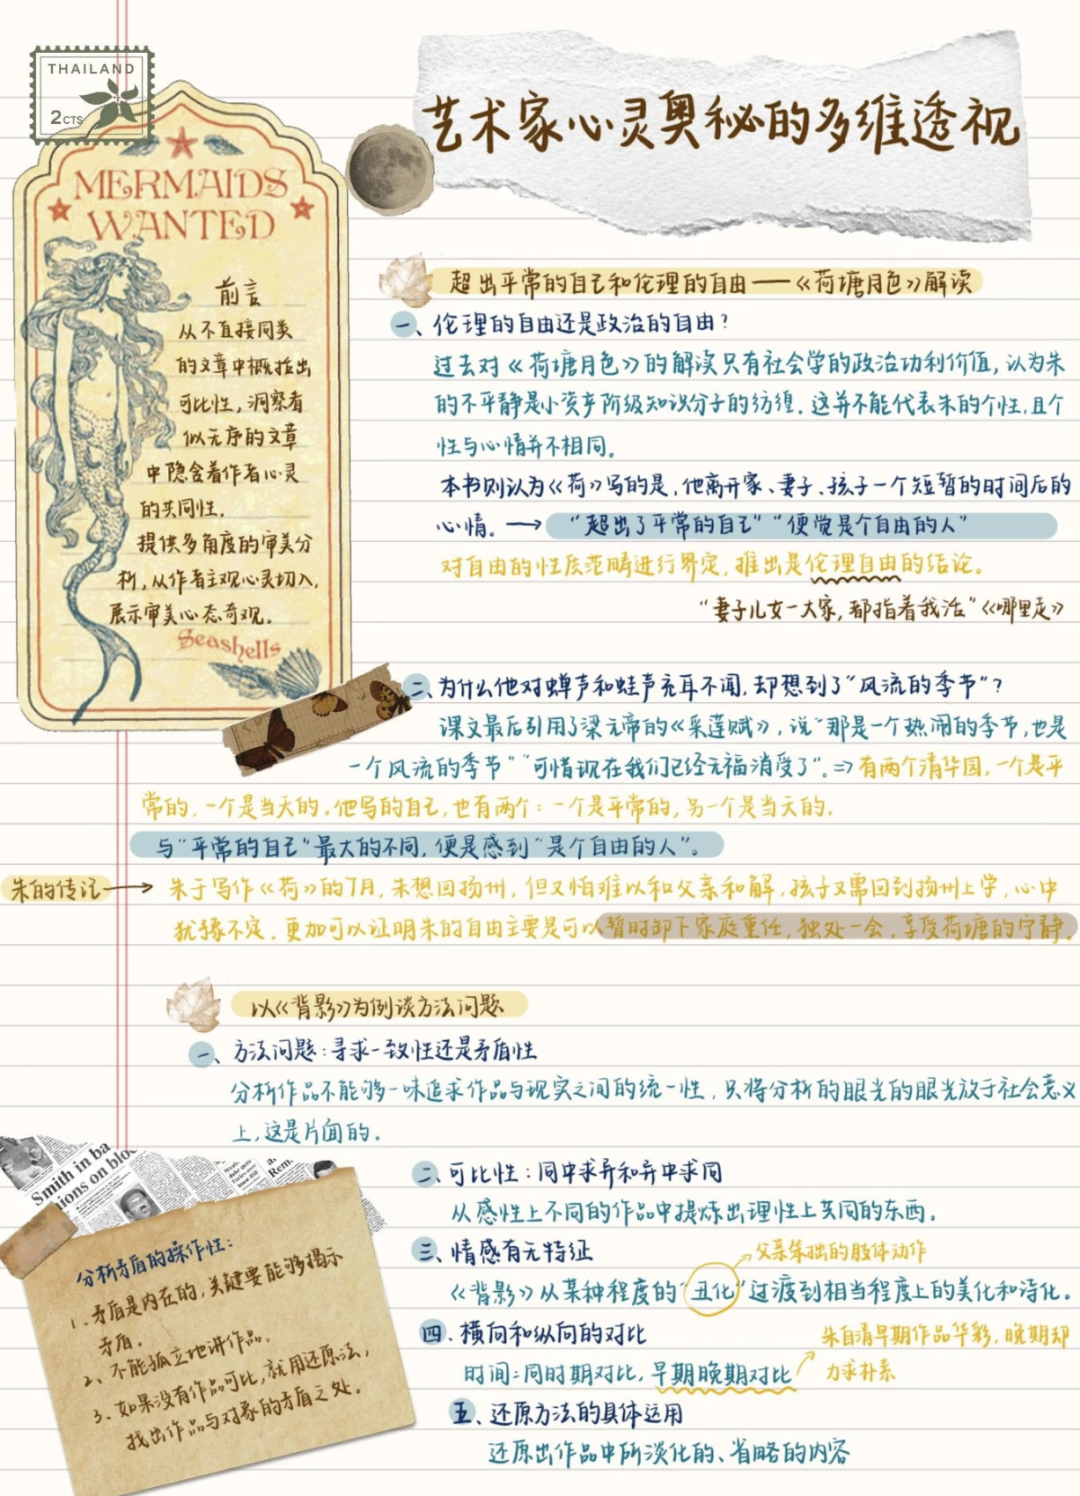 THAILAND
2CTS
艺术家心灵奥秘的多维透视
MERMAIDS
WANTED
前言
从不直接同类
的文章中概括出
可比性，洞察看
似无序的文章
中隐含着作者心灵
的共同性。
提供多角度的审美分
析，从作者主观心灵切入，
展示审美心态奇观。
Seashells
超出平常的自己和伦理的自由——《荷塘月色》解读
一、伦理的自由还是政治的自由？
过去对《荷塘月色》的解读只有社会学的政治功利价值，认为朱
的不平静是小资产阶级知识分子的彷徨。这并不能代表朱的个性，且个
性与心情并不相同。
本书则认为《荷》写的是，他离开家、妻子、孩子一个短暂的时间后的
心情。→“超出了平常的自己”“便觉是个自由的人”
对自由的性质范畴进行界定，推出是伦理自由的结论。
“妻子儿女一大家，都指着我活”《哪里走》
二、为什么他对蝉声和蛙声充耳不闻，却想到了“风流的季节”？
课文最后引用了梁元帝的《采莲赋》，说“那是一个热闹的季节，也是
一个风流的季节”“可惜现在我们已经无福消受了”。⇒有两个清华园，一个是平
常的，一个是当天的。他写的自己，也有两个：一个是平常的，另一个是当天的。
与“平常的自己”最大的不同，便是感到“是个自由的人”。
朱的传记→朱于写作《荷》的7月，朱想回扬州，但又怕难以和父亲和解，孩子又需回到扬州上学，心中
犹豫不定，更加可以证明朱的自由主要是可以暂时卸下家庭重任，独处一会，享受荷塘的宁静。
以《背影》为例谈方法问题
一、方法问题：寻求一致性还是矛盾性
分析作品不能够一味追求作品与现实之间的统一性，只将分析的眼光的眼光放于社会意义
上，这是片面的。
二、可比性：同中求异和异中求同
从感性上不同的作品中提炼出理性上共同的东西。
三、情感有无特征
父亲笨拙的肢体动作
《背影》从某种程度的“丑化”过渡到相当程度上的美化和诗化。
四、横向和纵向的对比
朱自清早期作品华彩，晚期却
力求朴素
时间：同时期对比，早期晚期对比
五、还原方法的具体运用
还原出作品中所淡化的、省略的内容
Smith in ba
ions on blo
分析矛盾的操作性：
1、矛盾是内在的，关键要能够揭示
矛盾。
2、不能孤立地讲作品。
3、如果没有作品可比，就用还原法，
找出作品与对象的矛盾之处。